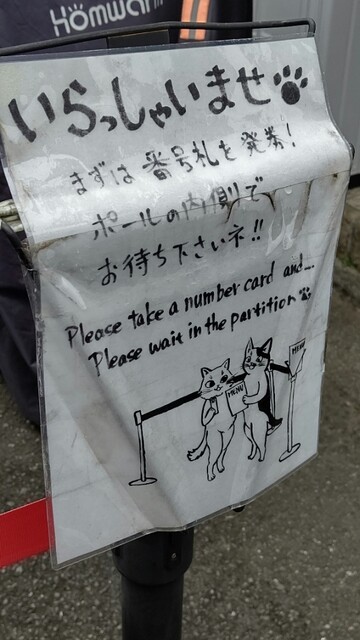 Homwar
いらっしゃいませ
まずは番号札を発券!
ポールの内側で
お待ち下さいネ!!
Please take a number card and...
Please wait in the partition
MENU
MENU